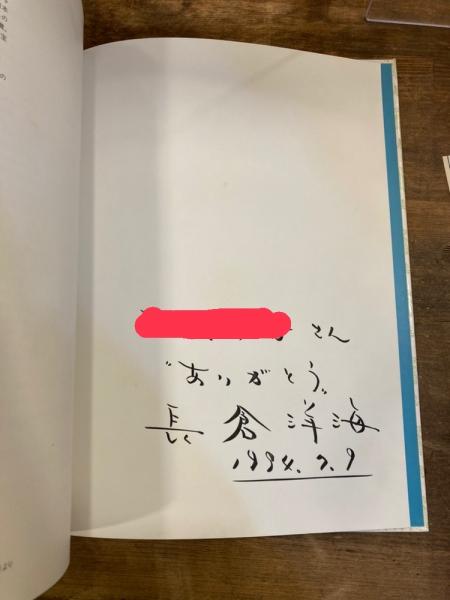 さん
"ありがとう"
長倉洋海
1994.7.9